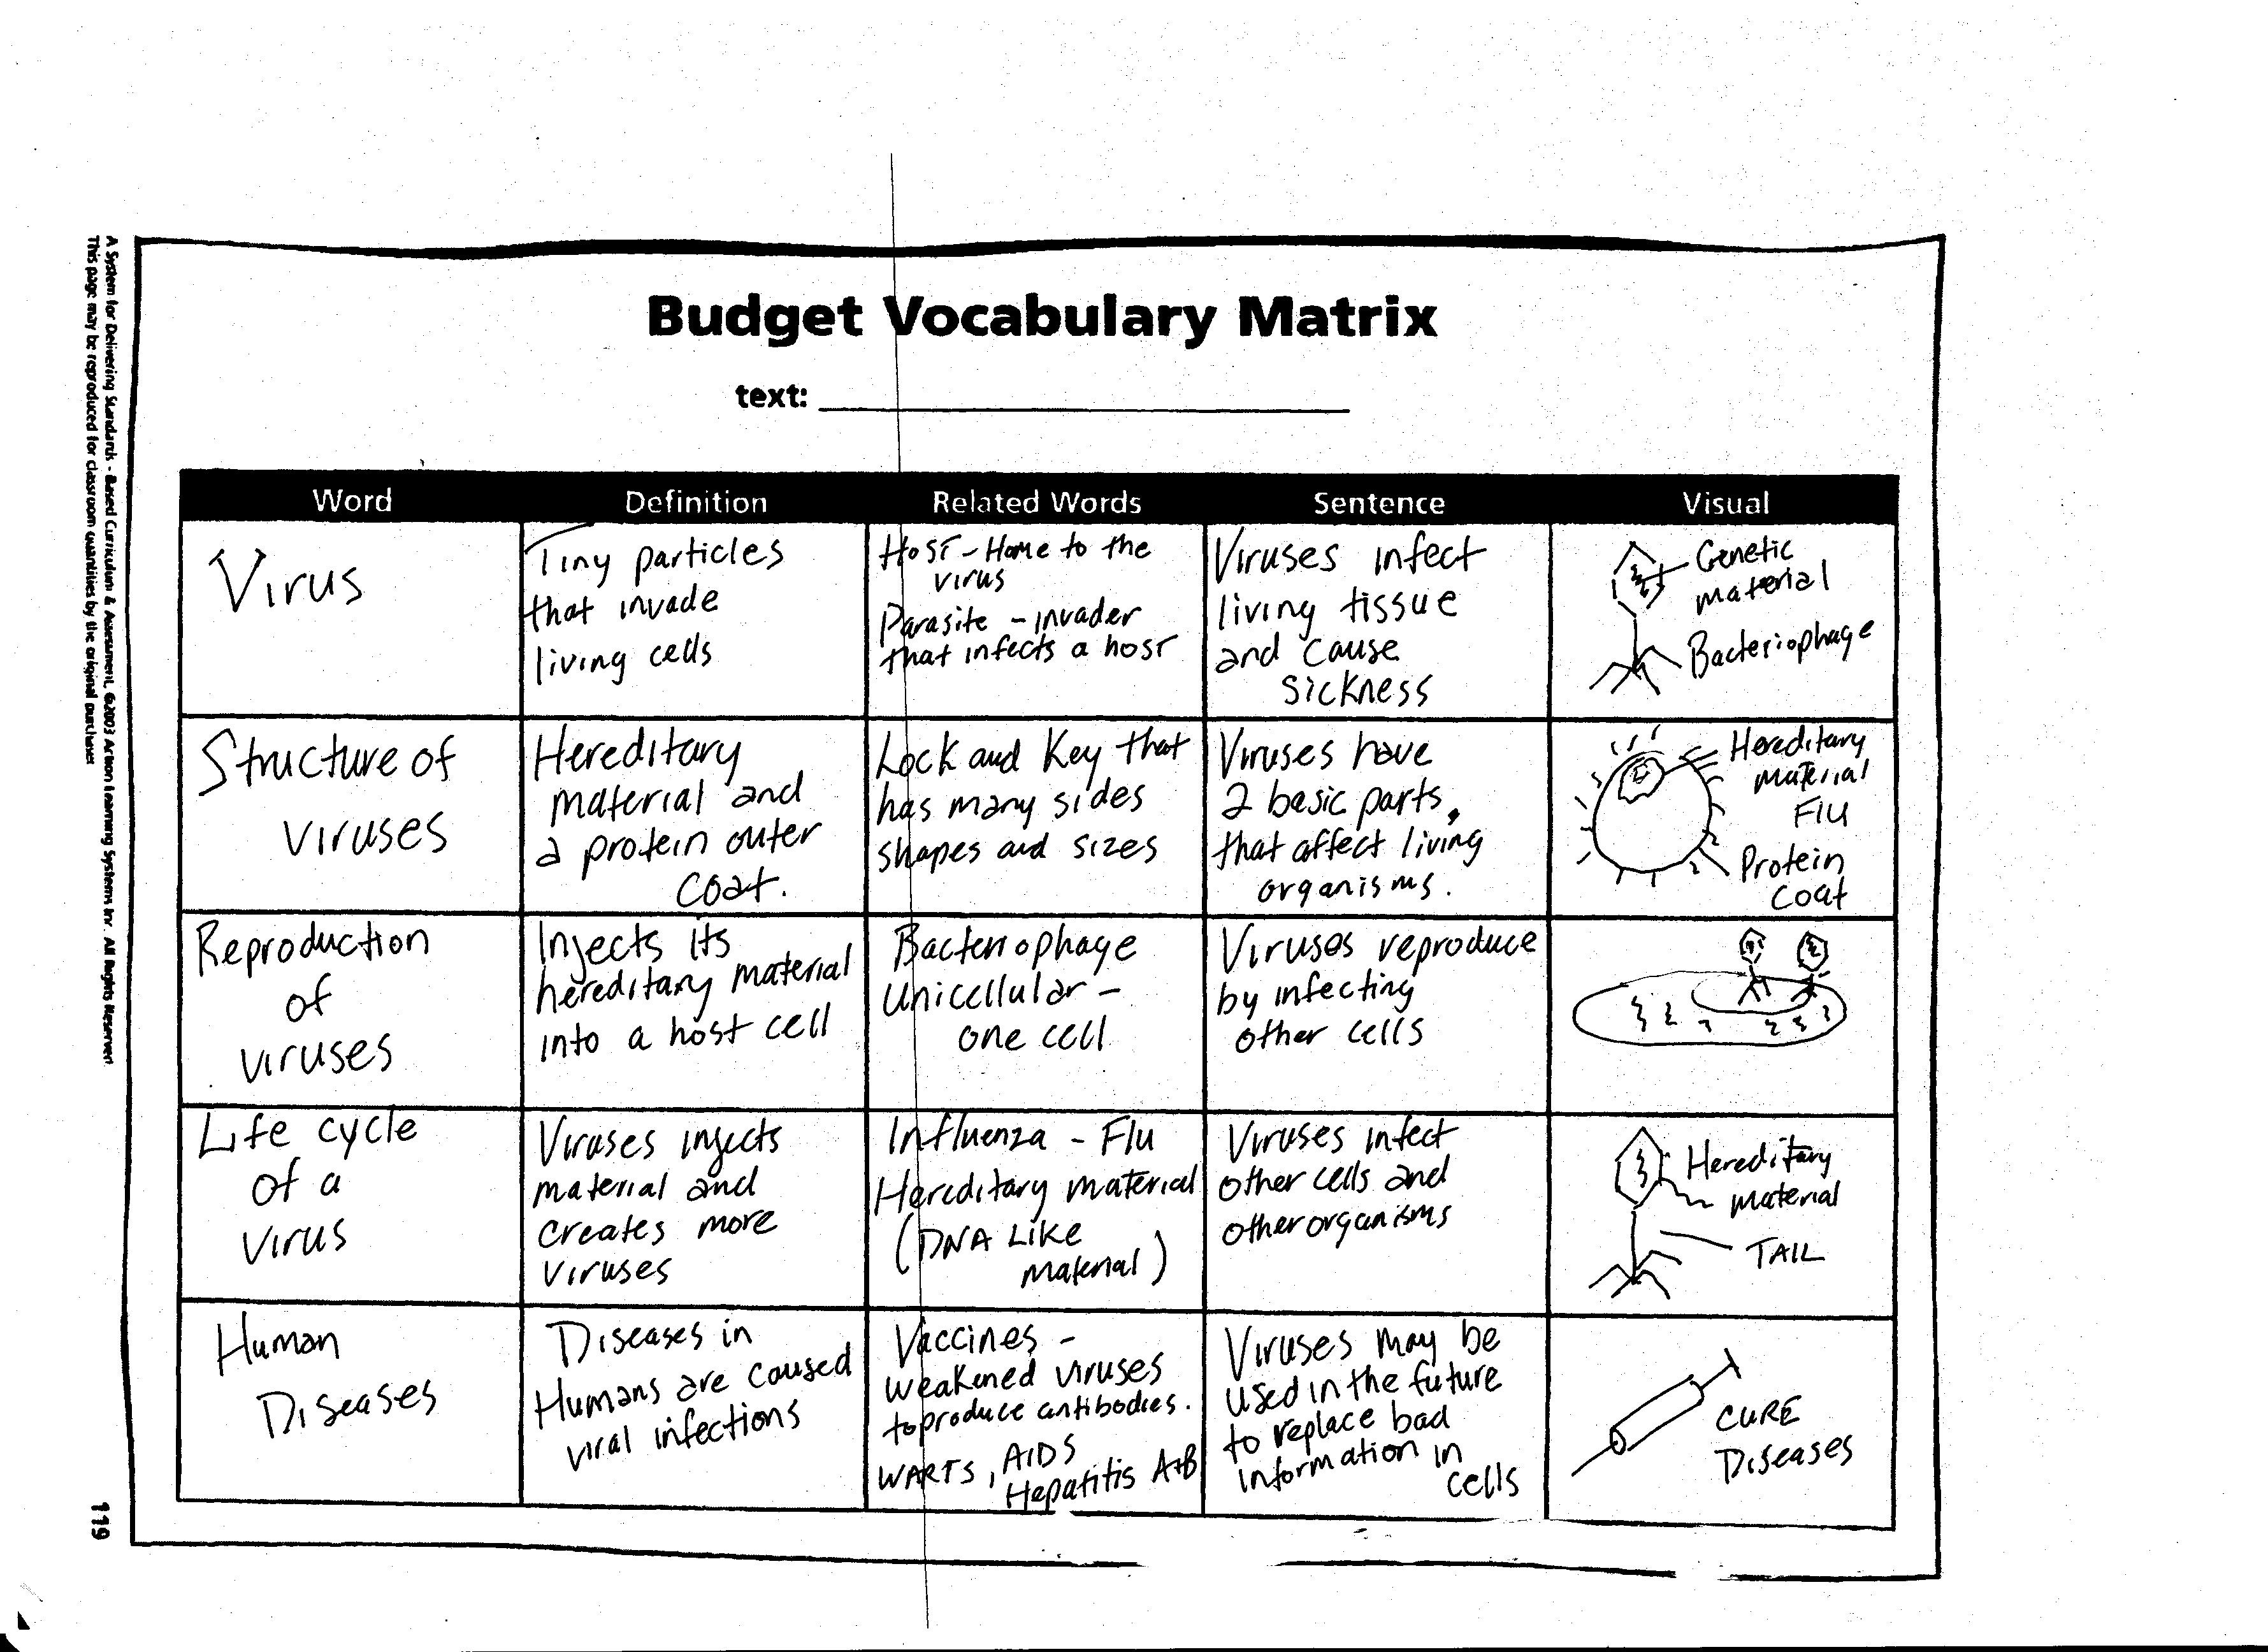 Budget Vocabulary Matrix
text:
Word Definition Related Words Sentence Visual
Virus
Tiny particles
that invade
living cells
Host - Home to the
virus
Parasite - invader
that infects a host
Viruses infect
living tissue
and cause
sickness
Genetic
material
Bacteriophage
Structure of
viruses
Hereditary
material and
a protein outer
coat.
Lock and Key that
has many sides
shapes and sizes
Viruses have
2 basic parts,
that affect living
organisms.
Hereditary
material
Flu
Protein
coat
Reproduction
of
viruses
Injects its
hereditary material
into a host cell
Bacteriophage
Unicellular -
one cell
Viruses reproduce
by infecting
other cells
Life cycle
of a
virus
Viruses injects
material and
creates more
viruses
Influenza - Flu
Hereditary material
(DNA Like
material)
Viruses infect
other cells and
other organisms
Hereditary
material
TAIL
Human
Diseases
Diseases in
Humans are caused
viral infections
Vaccines -
weakened viruses
to produce antibodies.
WARTS, AIDS
Hepatitis A+B
Viruses may be
used in the future
to replace bad
information in
cells
CURE
Diseases
A System for Delivering Standards - Based Curriculum & Assessment, ©2003 Action Learning Systems Inc. All Rights Reserved
This page may be reproduced for classroom quantities by the original purchaser
119